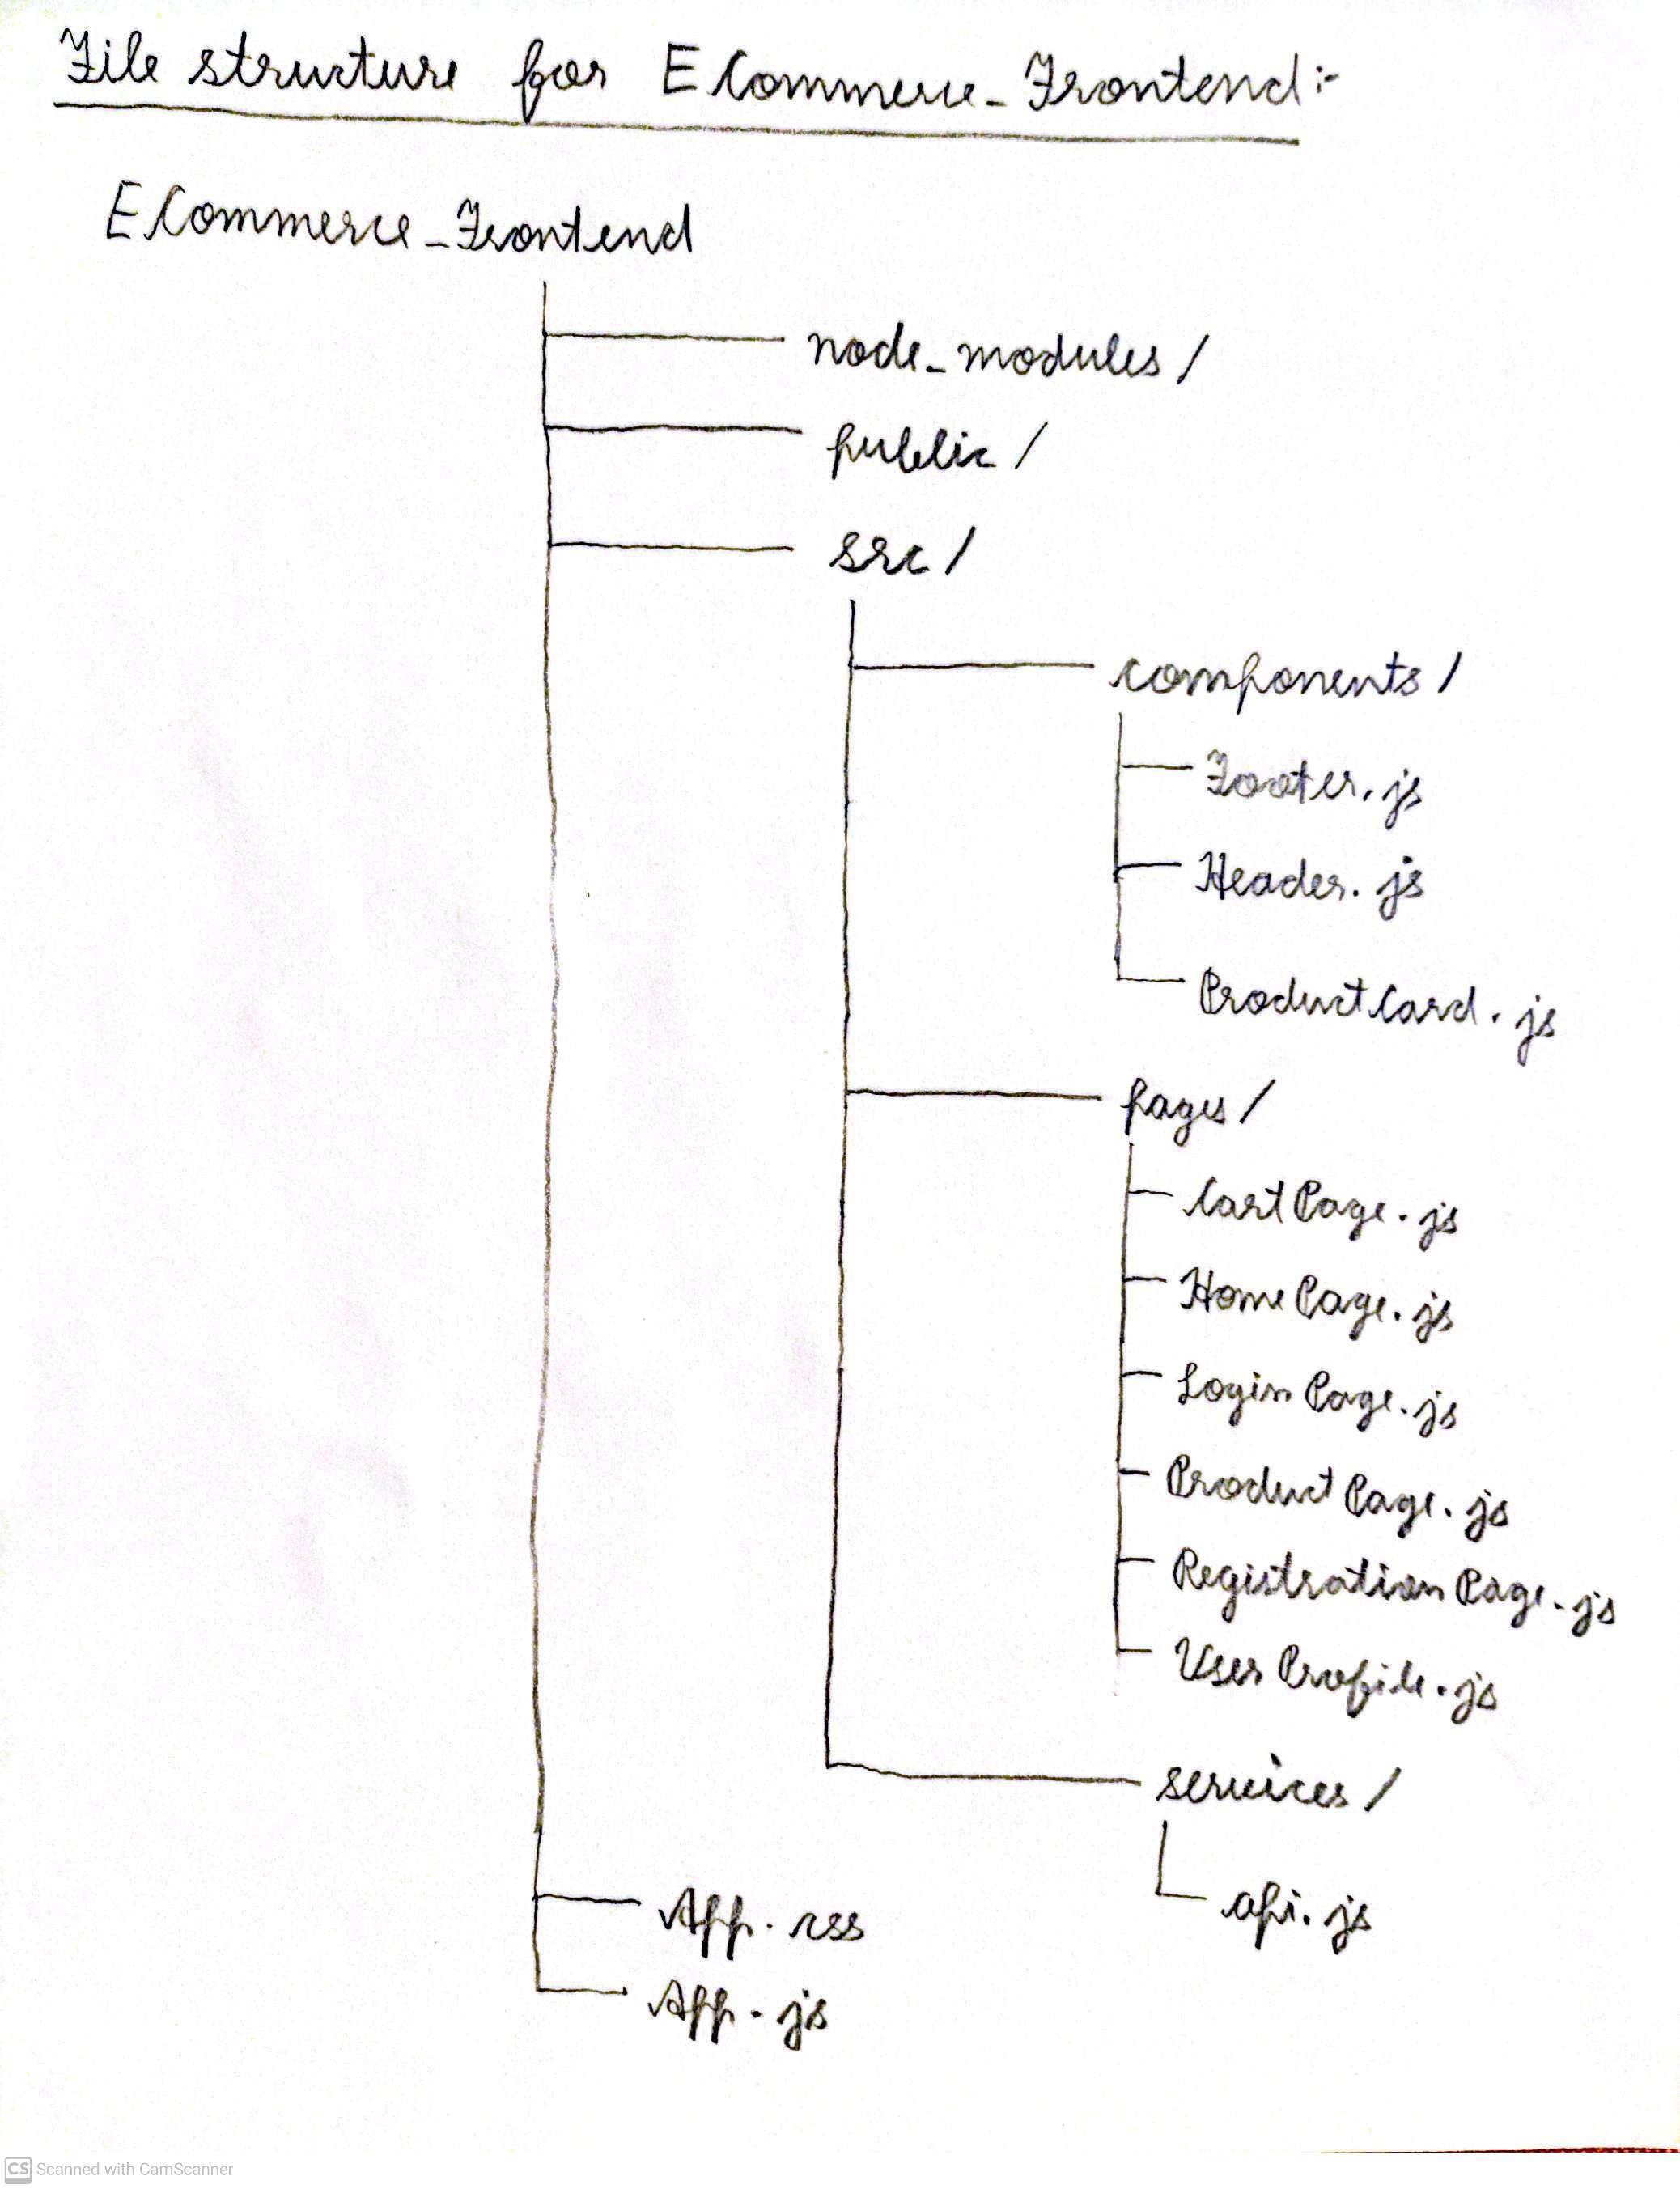 File structure for ECommerce_Frontend:-
ECommerce_Frontend
node_modules/
public/
src/
components/
Footer.js
Header.js
ProductCard.js
pages/
CartPage.js
HomePage.js
LoginPage.js
ProductPage.js
RegistrationPage.js
UserProfile.js
services/
api.js
App.css
App.js
CS Scanned with CamScanner